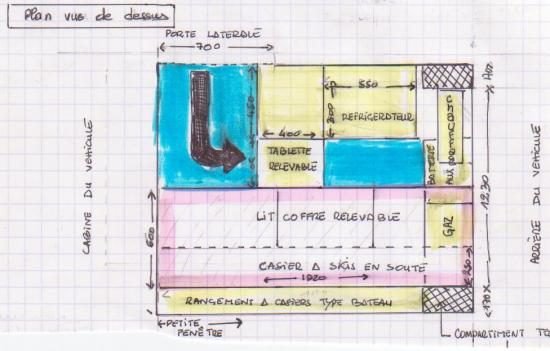 Plan vue de dessus
PORTE LATERALE
700
CABINE DU VEHICULE
450
550
300
REFRIGERATEUR
400
TABLETTE
RELEVABLE
BATTERIE
AUXILIAIRE
GAZ
1230
ARRIÈRE DU VEHICULE
600
LIT COFFRE RELEVABLE
CASIER A SKIS EN SOUTE
1920
250
170
RANGEMENT A CASIERS TYPE BATEAU
PETITE
FENÊTRE
COMPARTIMENT